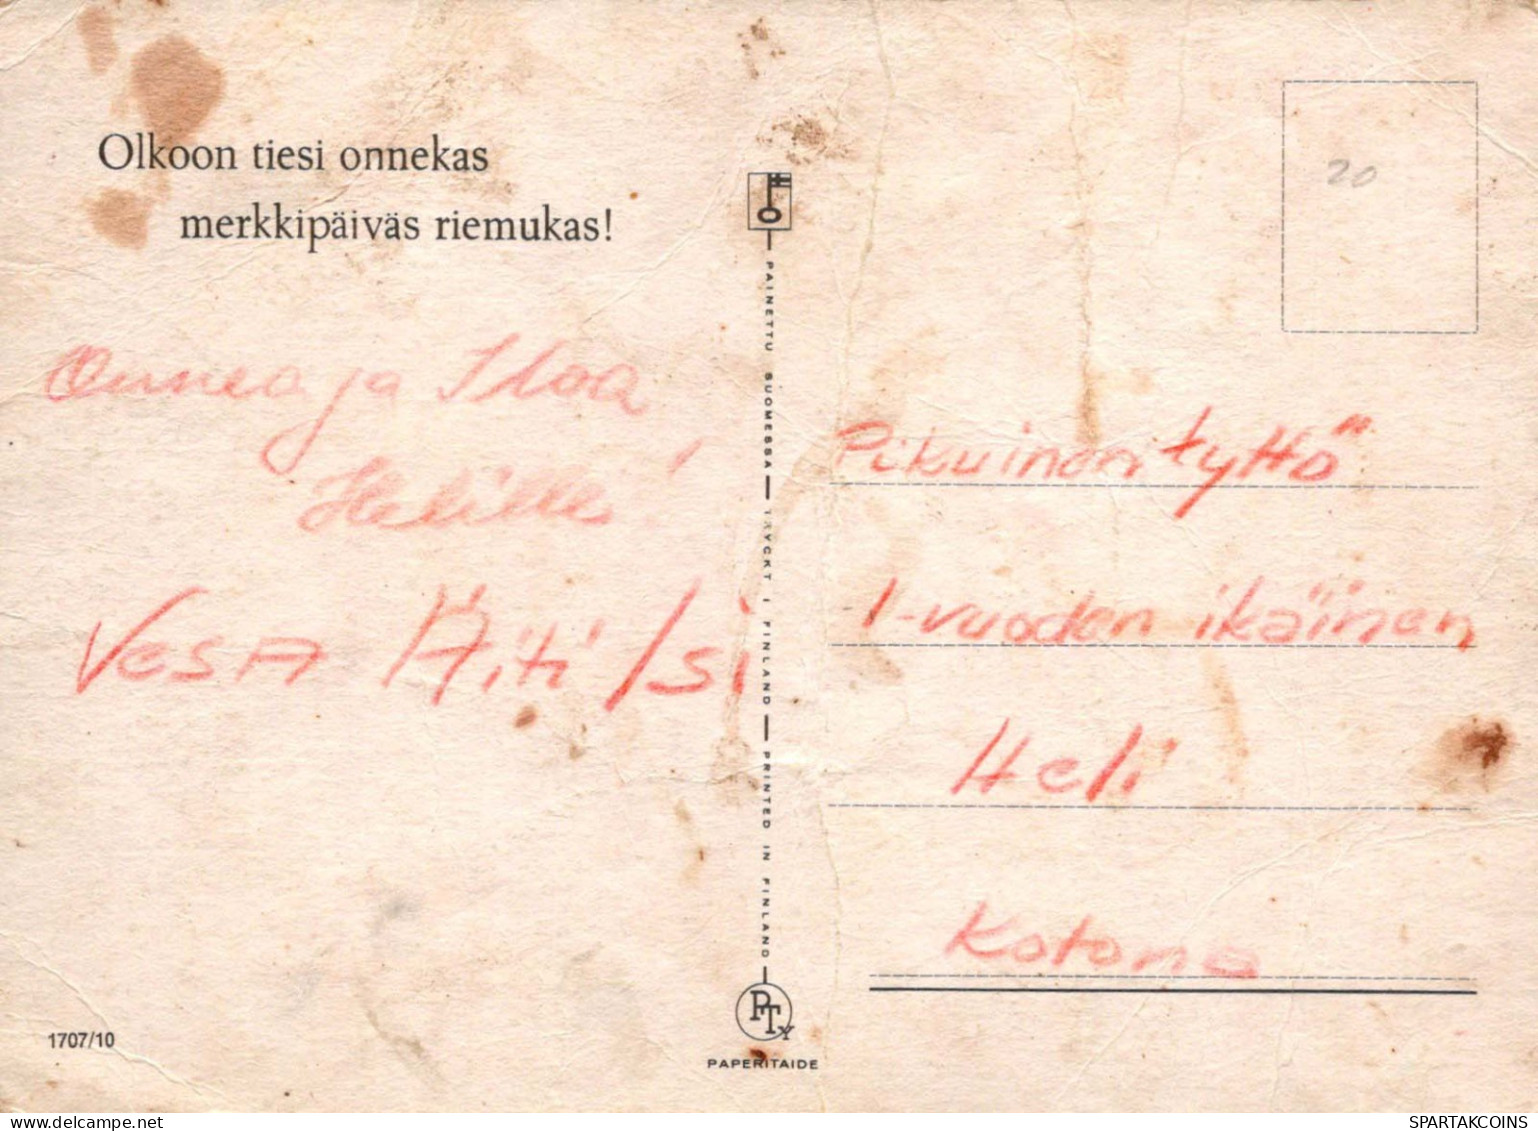 Olkoon tiesi onnekas
merkkipäiväs riemukas!
Onnea ja Iloa
Helille!
Vesa Äiti / si
1707/10
PAINETTU SUOMESSA — TRYCKT I FINLAND — PRINTED IN FINLAND
PTY
PAPERITAIDE
20
Pikuinen tyttö"
1-vuoden ikäinen
Heli
Kotona
SPARTAKCOINS
delcampe.net